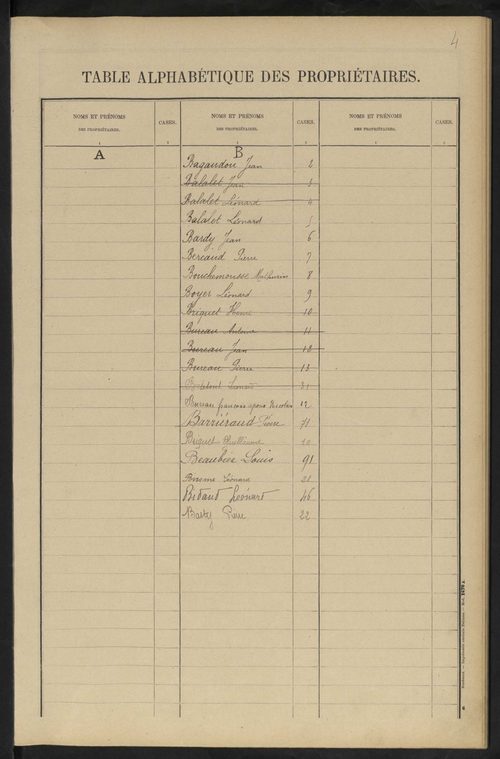 4
TABLE ALPHABÉTIQUE DES PROPRIÉTAIRES.
NOMS ET PRÉNOMS DES PROPRIÉTAIRES. CASES. NOMS ET PRÉNOMS DES PROPRIÉTAIRES. CASES. NOMS ET PRÉNOMS DES PROPRIÉTAIRES. CASES.
A B
Bagaudou Jean 2
Balalet Jean 3
Balalet Léonard 4
Balalet Léonard 5
Bardy Jean 6
Bereaud Pierre 7
Bouchemousse Mathurin 8
Boyer Léonard 9
Briquet Henri 10
Bureau Antoine 11
Bureau Jean 12
Bureau Pierre 13
Léonard 31
Bureau françois époux 12
Barriéraud Pierre 71
Briquet Guillaume 10
Beaubier Louis 91
Léonard 28
Bidaud Léonard 46
Basty Pierre 22